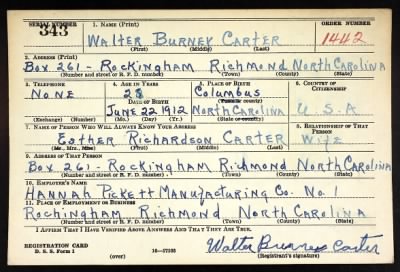 SERIAL NUMBER 1. NAME (Print) ORDER NUMBER
343 WALTER BURNEY CARTER 1442
(First) (Middle) (Last)
2. ADDRESS (Print)
BOX 261 - ROCKINGHAM RICHMOND NORTH CAROLINA
(Number and street or R. F. D. number) (Town) (County) (State)
3. TELEPHONE 4. AGE IN YEARS 5. PLACE OF BIRTH 6. COUNTRY OF CITIZENSHIP
NONE 28 COLUMBUS
DATE OF BIRTH (Town or county)
JUNE 22 1912 NORTH CAROLINA U.S.A
7. NAME OF PERSON WHO WILL ALWAYS KNOW YOUR ADDRESS 8. RELATIONSHIP OF THAT PERSON
ESTHER RICHARDSON CARTER WIFE
(Mr., Mrs., Miss) (First) (Middle) (Last)
9. ADDRESS OF THAT PERSON
BOX 261 - ROCKINGHAM RICHMOND NORTH CAROLINA
(Number and street or R. F. D. number) (Town) (County) (State)
10. EMPLOYER'S NAME
HANNAH PICKETT MANUFACTURING CO. NO. 1
11. PLACE OF EMPLOYMENT OR BUSINESS
ROCKINGHAM RICHMOND NORTH CAROLINA
(Number and street or R. F. D. number) (Town) (County) (State)
I AFFIRM THAT I HAVE VERIFIED ABOVE ANSWERS AND THAT THEY ARE TRUE.
REGISTRATION CARD
D. S. S. Form 1 16-17105 Walter Burney Carter
(Registrant's signature)